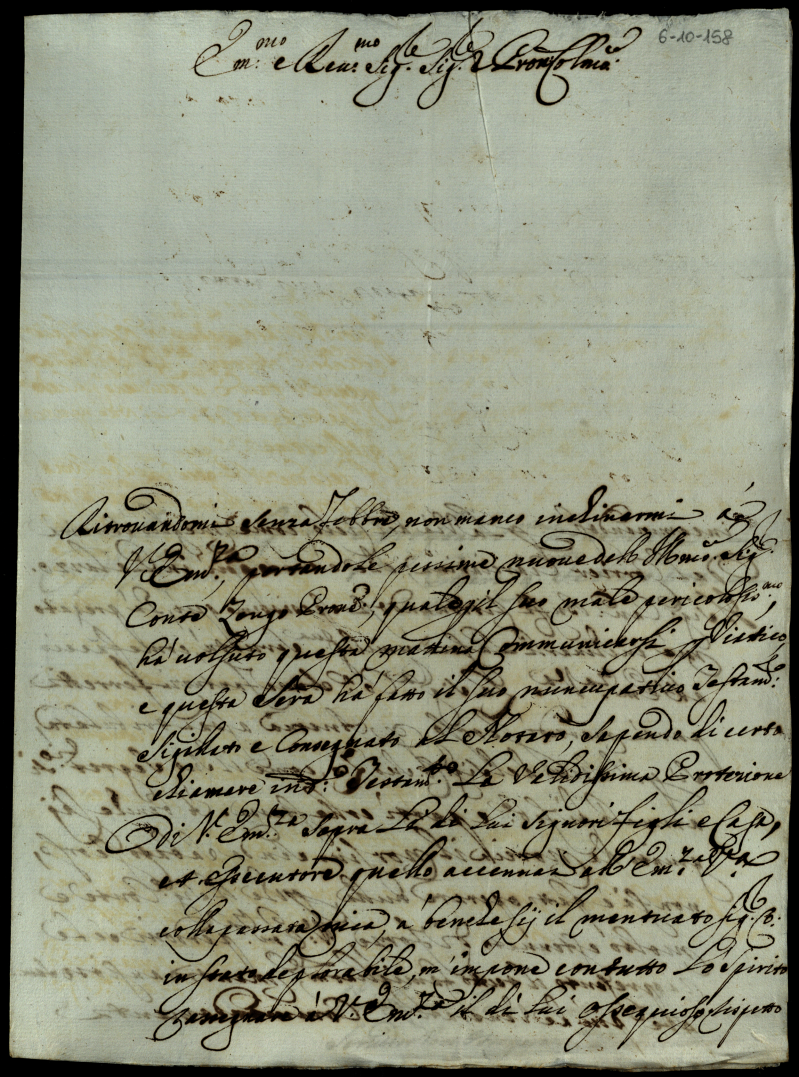 6-10-158
Em.mo e Reu.mo Sig.re Sig.re e Pron Colmo.
Ritrouandomi senza Febbre, non manco inchinarmi á
V. Em.za, portandole pessime nuoue dell' Sig.
Conte Prone, quale pil suo male pericolosis.mo,
há uolsuto questa mattina Communicarsi p Viatico
e questa sera há fatto il suo nuncupatiuo Testam.to
Sigilato e Consegnato al Notaro, sapendo di certo
chiamare in d.o Testam.to La Validissima Protezione
di V. Em.za sopra Li di Lui Signori Figli e Casa,
et essecutore quello accennai all' Em.za V.ra
colla passata mia, á benche sij il mentuato Sig. C.
in stato deplorabile, m'impone con tutto Lo spirito
rassegnare á V. Em.za il di Lui ossequioso rispetto